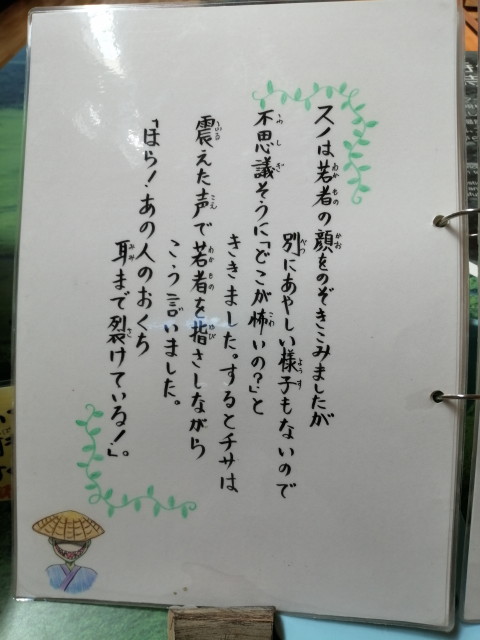 スノは若者の顔をのぞきこみましたが
別にあやしい様子もないので
不思議そうに「どこが怖いの?」と
ききました。するとチサは
震えた声で若者を指さしながら
こう言いました。
「ほら!あの人のおくち
耳まで裂けている!」。